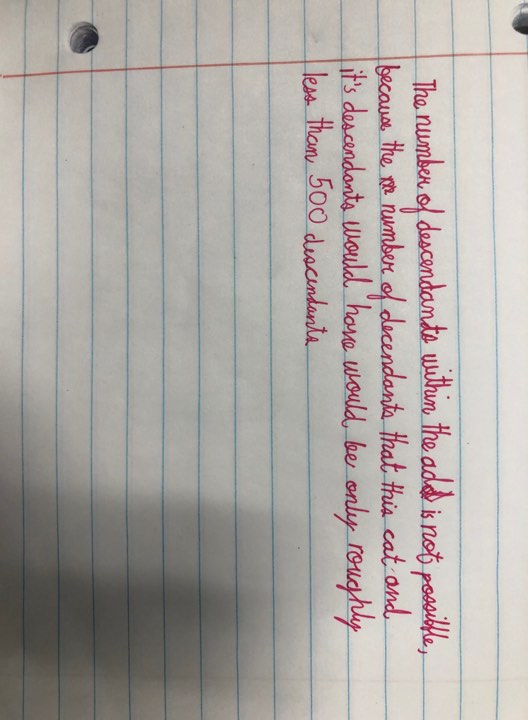 The number of descendants within the add is not possible,
because the number of decendants that this cat and
it's descendants would have would be only roughly
less than 500 discendants